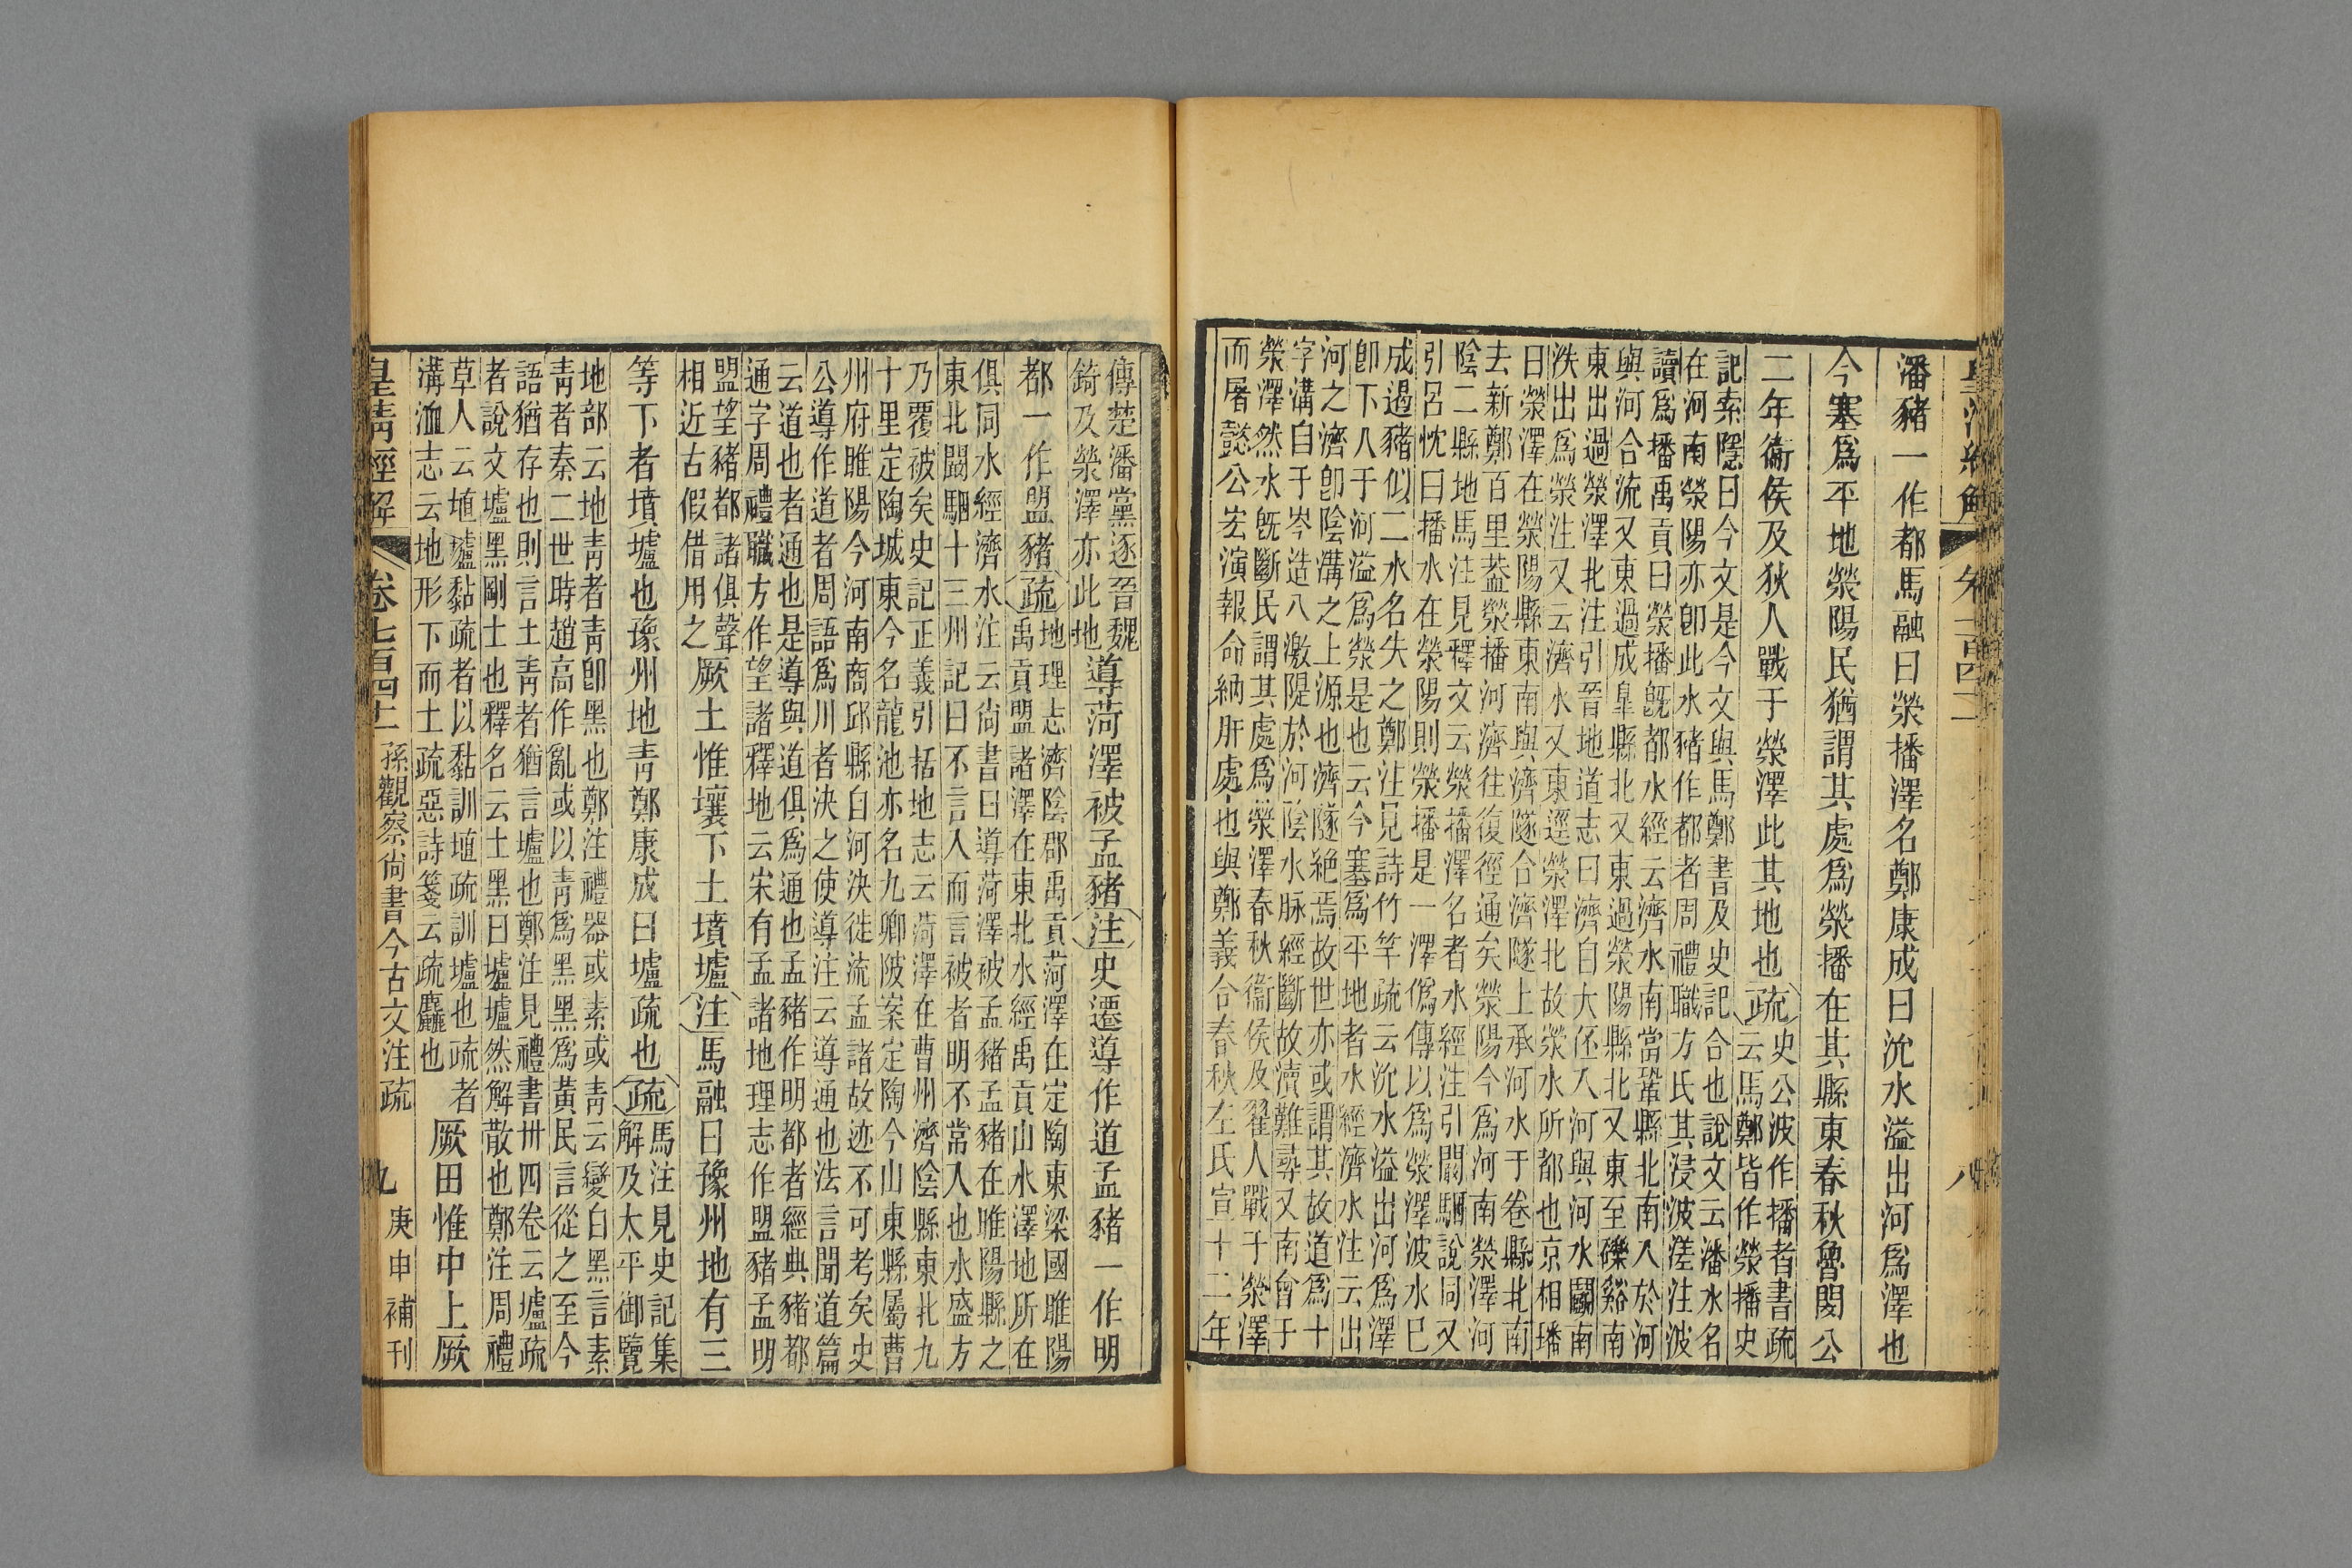 八
潘豬一作都馬融曰滎播澤名鄭康成曰沇水溢出河爲澤也
今塞爲平地滎陽民猶謂其處爲滎播在其縣東春秋魯閔公
二年衞侯及狄人戰于滎澤此其地也疏
史公波作播者書疏
云馬鄭皆作滎播史
記索隱曰今文是今文與馬鄭書及史記合也說文云潘水名
在河南滎陽亦卽此水豬作都者周禮職方氏其浸波溠注波
讀爲播禹貢曰滎播旣都水經云濟水南當鞏縣北南入於河
與河合流又東過成皐縣北又東過滎陽縣北又東至礫谿南
東出過滎澤北注引晉地道志曰濟自大伾入河與河水鬭南
泆出爲滎注又云濟水又東逕滎澤北故滎水所都也京相璠
曰滎澤在滎陽縣東南與濟隧合濟隧上承河水于卷縣北南
去新鄭百里葢滎播河濟往復徑通矣滎陽今爲河南滎澤河
陰二縣地馬注見釋文云滎播澤名者水經注引闞駰說同又
引呂忱曰播水在滎陽則滎播是一澤僞傳以爲滎澤波水已
成遏豬似二水名失之鄭注見詩竹竿疏云沇水溢出河爲澤
卽下入于河溢爲滎是也云今塞爲平地者水經濟水注云出
河之濟卽陰溝之上源也濟隧絕焉故世亦或謂其故道爲十
字溝自于岑造八激隄於河陰水脉經斷故瀆難尋又南會于
滎澤然水旣斷民謂其處爲滎澤春秋衞侯及翟人戰于滎澤
而屠懿公宏演報命納肝處也與鄭義合春秋左氏宣十二年
傳楚潘黨逐晉魏
錡及滎澤亦此地
導菏澤被孟豬注史遷導作道孟豬一作明
都一作盟豬疏
地理志濟陰郡禹貢菏澤在定陶東梁國睢陽
禹貢盟諸澤在東北水經禹貢山水澤地所在
俱同水經濟水注云尙書曰導菏澤被孟豬孟豬在睢陽縣之
東北闞駰十三州記曰不言入而言被者明不常入也水盛方
乃覆被矣史記正義引括地志云菏澤在曹州濟陰縣東北九
十里定陶城東今名龍池亦名九卿陂案定陶今山東縣屬曹
州府睢陽今河南商邱縣自河決徙流孟諸故迹不可考矣史
公導作道者周語爲川者決之使導注云導通也法言聞道篇
云道也者通也是導與道俱爲通也孟豬作明都者經典豬都
通字周禮職方作望諸釋地云宋有孟諸地理志作盟豬孟明
盟望豬都諸俱聲
相近古假借用之
厥土惟壤下土墳壚注馬融曰豫州地有三
等下者墳壚也豫州地靑鄭康成曰壚疏也疏
馬注見史記集
解及太平御覽
地部云地靑者靑卽黑也鄭注禮器或素或靑云變白黑言素
靑者秦二世時趙高作亂或以靑爲黑黑爲黃民言從之至今
語猶存也則言土靑者猶言壚也鄭注見禮書卅四卷云壚疏
者說文壚黑剛土也釋名云土黑曰壚壚然解散也鄭注周禮
草人云埴壚黏疏者以黏訓埴疏訓壚也疏者
溝洫志云地形下而土疏惡詩箋云疏麤也
厥田惟中上厥
皇淸經解 卷七百四十二 孫觀察尙書今古文注疏 九 庚申補刊